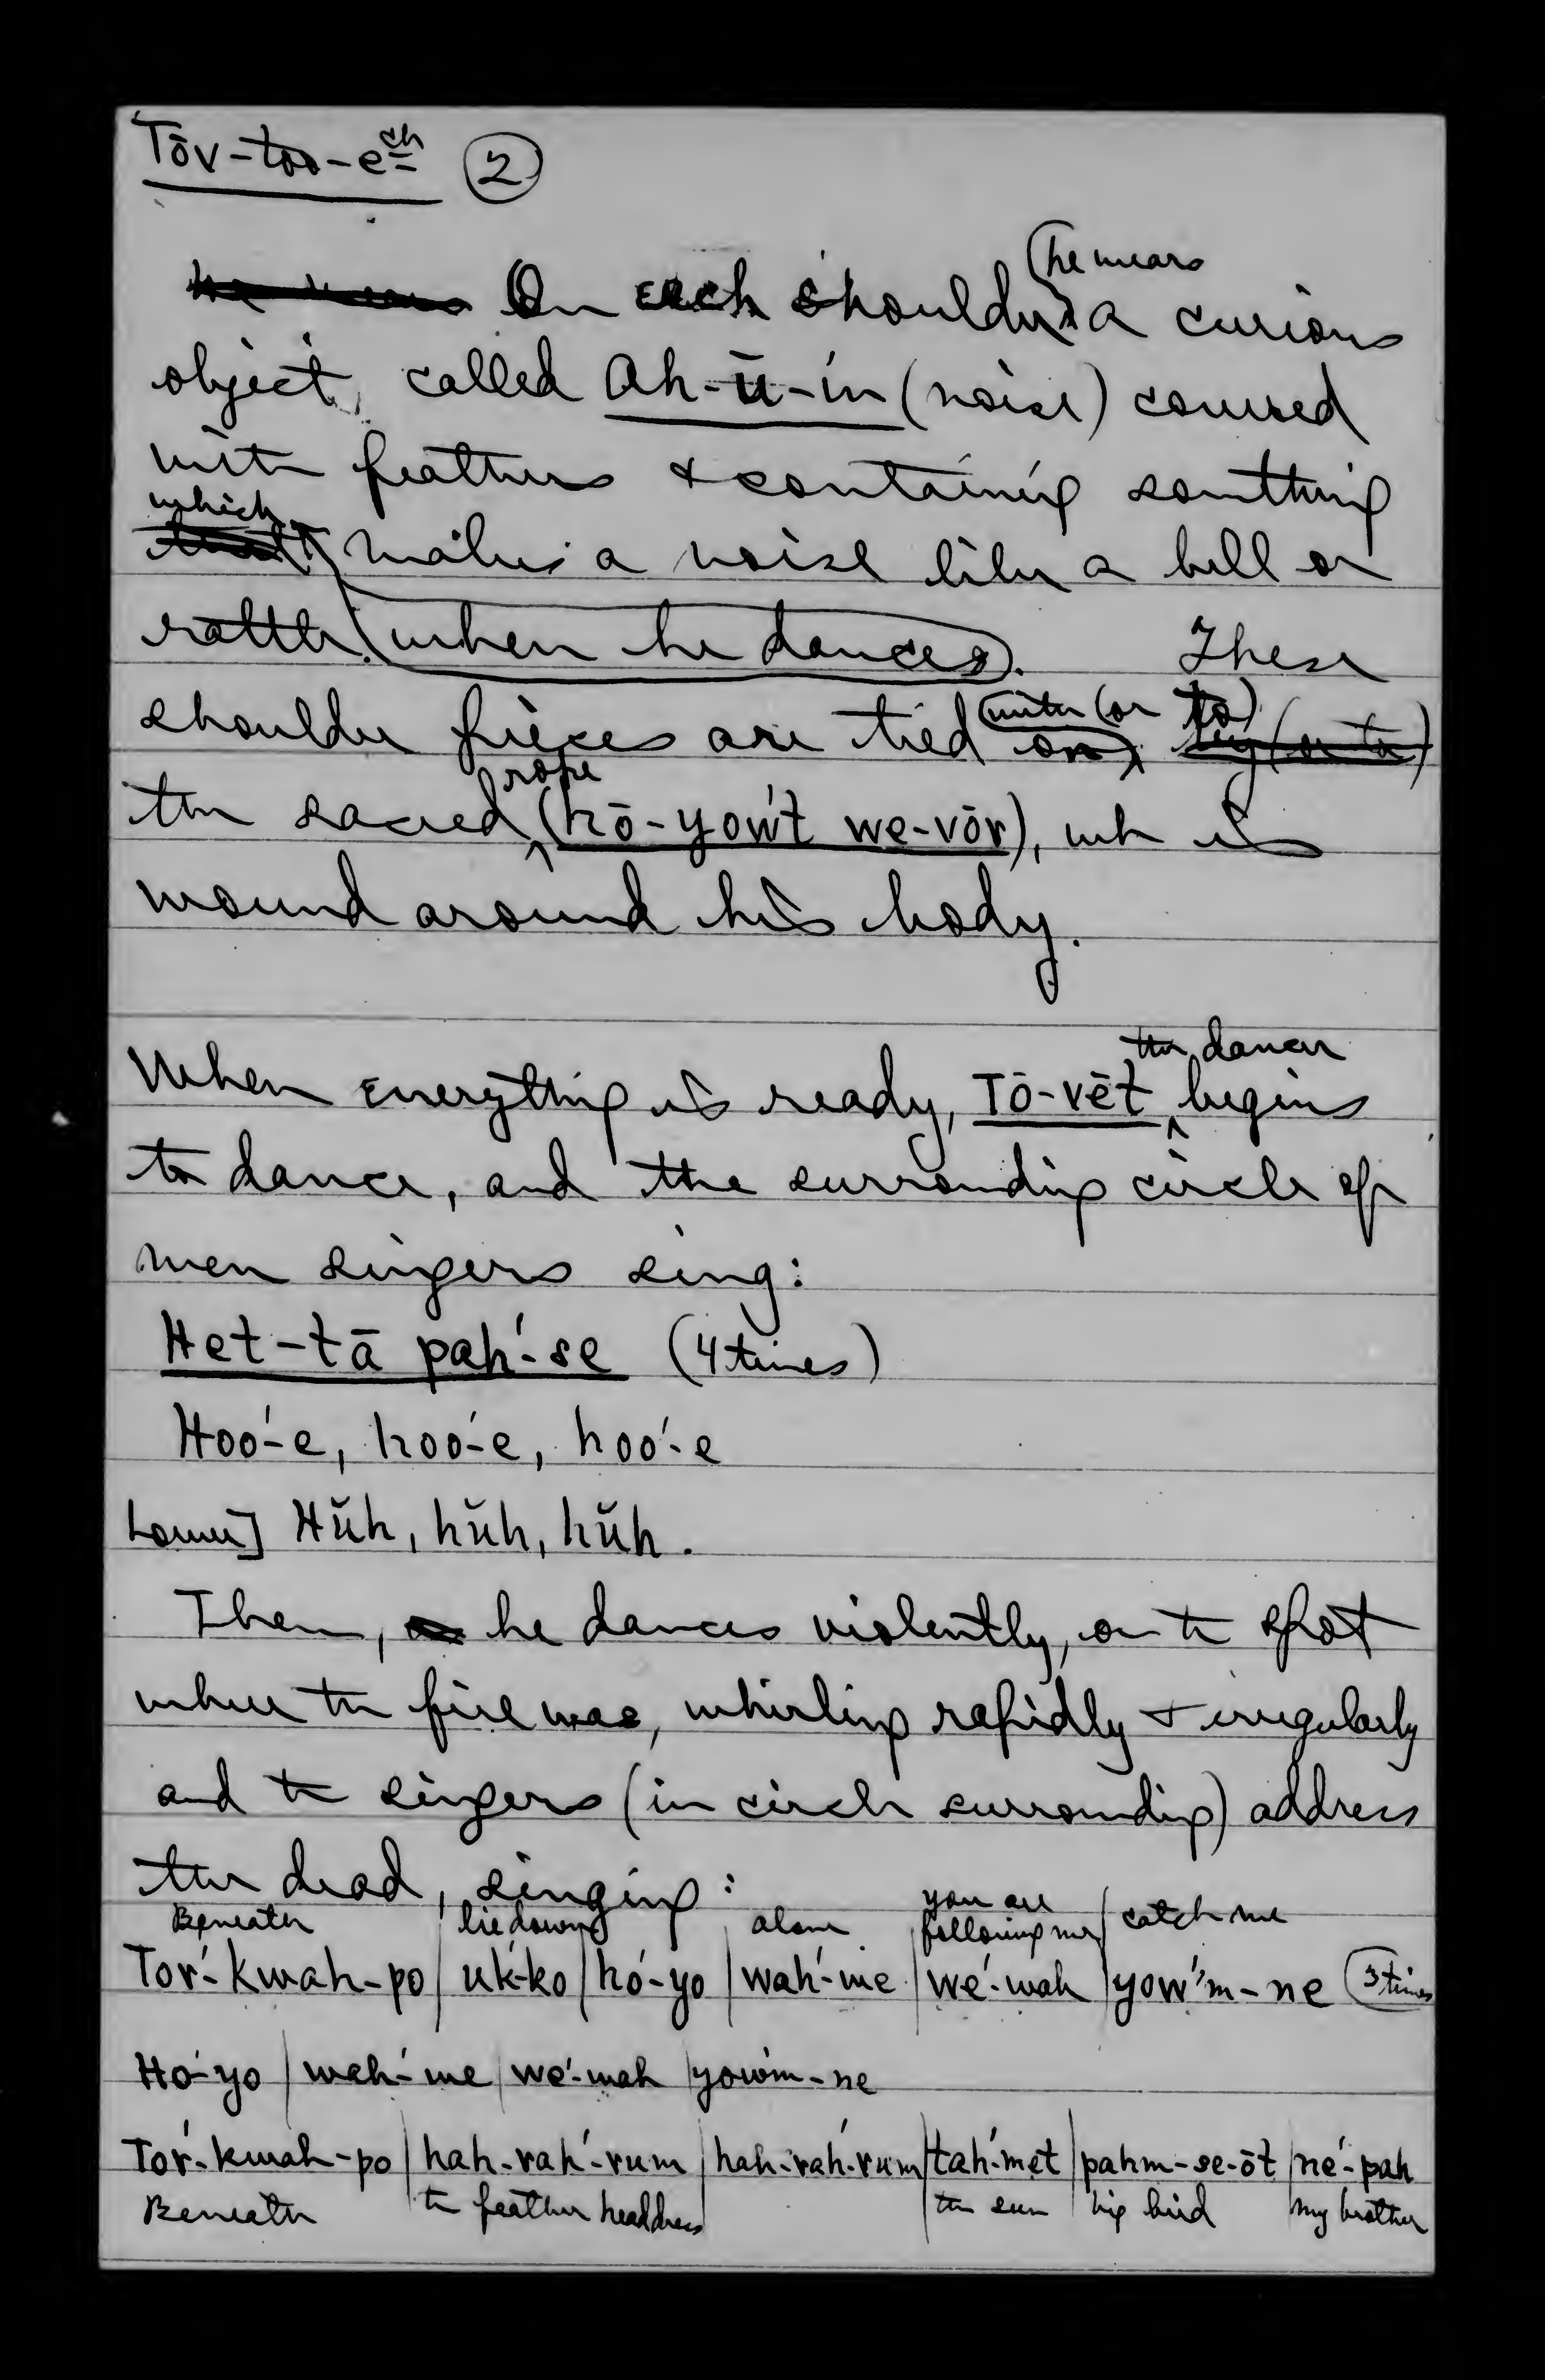 Tōv-too-e͞ch (2)
he wears
~~he wears~~ On each shoulder a curious
object, called Ah-ū-in (noise) covered
with feathers & containing something
which
~~that~~ makes a noise like a bell or
rattle when he dances. These
shoulder pieces are tied with (or to) ~~by (or to)~~
rope
the sacred (hō-yow't we-vōr), wh is
wound around his body.
the dancer
When everything is ready, Tō-vēt begins
to dance, and the surrounding circle of
men singers sing:
Het-tā pah'-se (4 times)
Hoo'-e, hoo'-e, hoo'-e
Lower] Hŭh, hŭh, hŭh.
Then, he dances violently, on the spot
where the fire was, whirling rapidly & irregularly
and the singers (in circle surrounding) address
the dead, singing:
Beneath | lie down | alone | you are following me | catch me
Tor'-kwah-po | uk'-ko | ho'-yo | wah'-me | we'-wah | yow'm-ne (3 times)
Ho'-yo | wah'-me | we'-wah | yow'm-ne
Tor'-kwah-po | hah-rah'-rum | hah-rah'-rum | tah'-met | pahm-se-ōt | ne'-pah
Beneath | the feather headdress | the sun | big bird | my brother